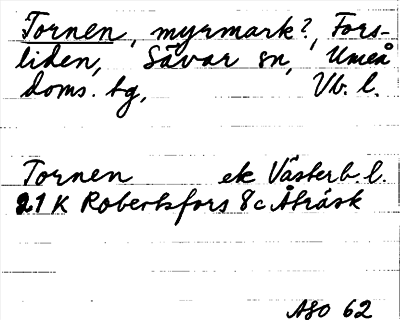 Tornen, myrmark?, Fors-
liden, Sävar sn, Umeå
doms. bg, Vb. l.
Tornen ek Västerb. l.
21 K Robertsfors 8c Åträsk
ASO 62